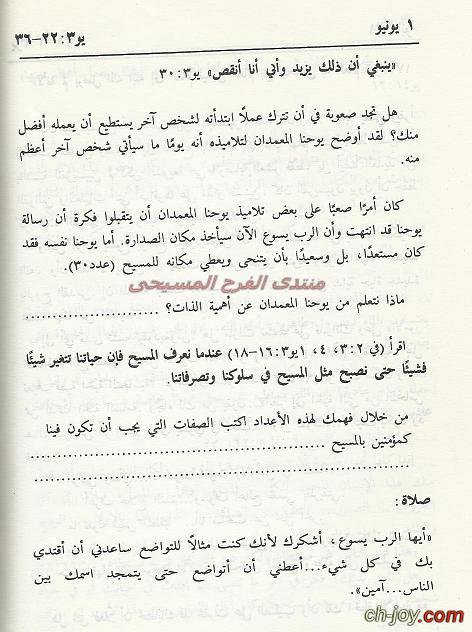 ١ يونيو
يو٣: ٢٢-٣٦
«ينبغي أن ذلك يزيد وأني أنا أنقص» يو٣: ٣٠
هل تجد صعوبة في أن تترك عملًا ابتدأته لشخص آخر يستطيع أن يعمله أفضل
منك؟ لقد أوضح يوحنا المعمدان لتلاميذه أنه يومًا ما سيأتي شخص آخر أعظم
منه.
كان أمرًا صعبًا على بعض تلاميذ يوحنا المعمدان أن يتقبلوا فكرة أن رسالة
يوحنا قد انتهت وأن الرب يسوع الآن سيأخذ مكان الصدارة. أما يوحنا نفسه فقد
كان مستعدًا، بل وسعيدًا بأن يتنحى ويعطي مكانه للمسيح (عدد٣٠).
منتدى الفرح المسيحى
ماذا نتعلم من يوحنا المعمدان عن أهمية الذات؟ ........................
اقرأ (في ٢: ٣، ٤، ١يو٣: ١٦-١٨) عندما نعرف المسيح فإن حياتنا تتغير شيئًا
فشيئًا حتى نصبح مثل المسيح في سلوكنا وتصرفاتنا.
من خلال فهمك لهذه الأعداد اكتب الصفات التي يجب أن تكون فينا
كمؤمنين بالمسيح ................................................
................................................................
صلاة:
«أيها الرب يسوع، أشكرك لأنك كنت مثالًا للتواضع ساعدني أن أقتدي
بك في كل شيء...أعطني أن أتواضع حتى يتمجد اسمك بين
الناس...آمين».
ch-joy.com